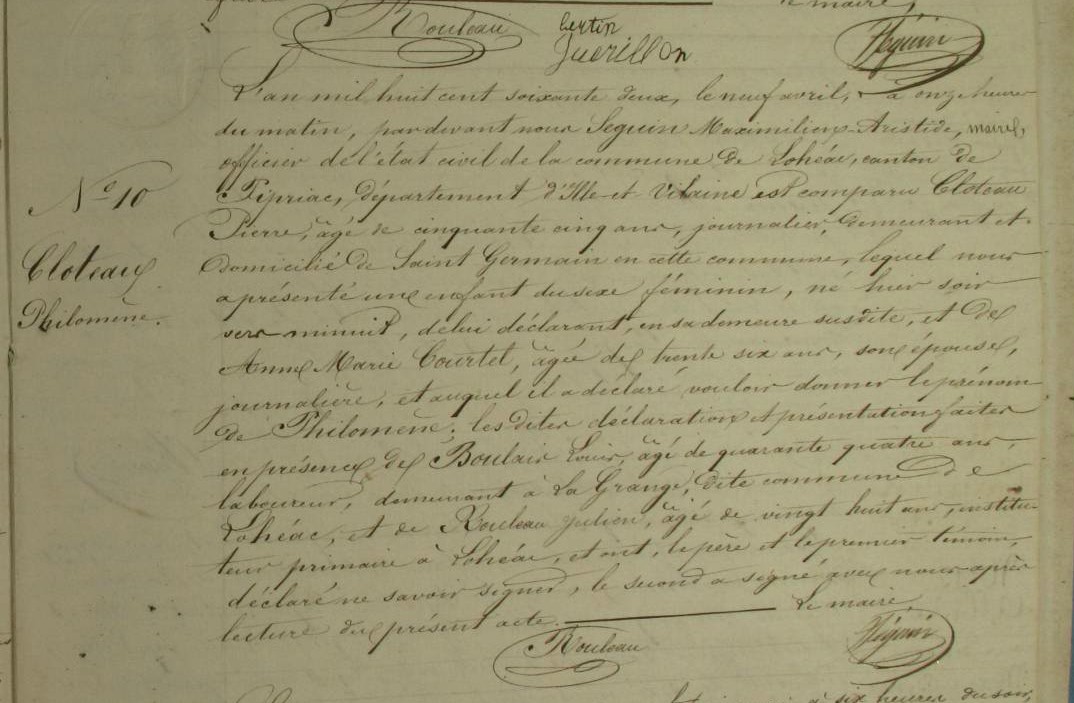 le maire,
Rouleau Bertin Seguin
Guerillon
L'an mil huit cent soixante deux, le neuf avril, à onze heures
du matin, pardevant nous Seguin Maximilien-Aristide, maire,
officier de l'état civil de la commune de Lohéac, canton de
N.o 10
Pipriac, département d'Ille-et-Vilaine est comparu Cloteau
Pierre, âgé de cinquante cinq ans, journalier, demeurant et
Cloteau
domicilié de Saint Germain en cette commune, lequel nous
Philomène.
a présenté un enfant du sexe féminin, né hier soir
vers minuit, de lui déclarant, en sa demeure susdite, et de
Anne Marie Courtel, âgée de trente six ans, son épouse,
journalière, et auquel il a déclaré vouloir donner le prénom
de Philomène; les dites déclaration et présentation faites
en présence de Boulais Louis, âgé de quarante quatre ans,
laboureur, demeurant à La Grange, dite commune de
Lohéac, et de Rouleau Julien, âgé de vingt huit ans, institu-
teur primaire à Lohéac, et ont, le père et le premier témoin,
déclaré ne savoir signer, le second a signé avec nous après
lecture du présent acte. Le maire,
Rouleau Seguin
à six heures du soir,